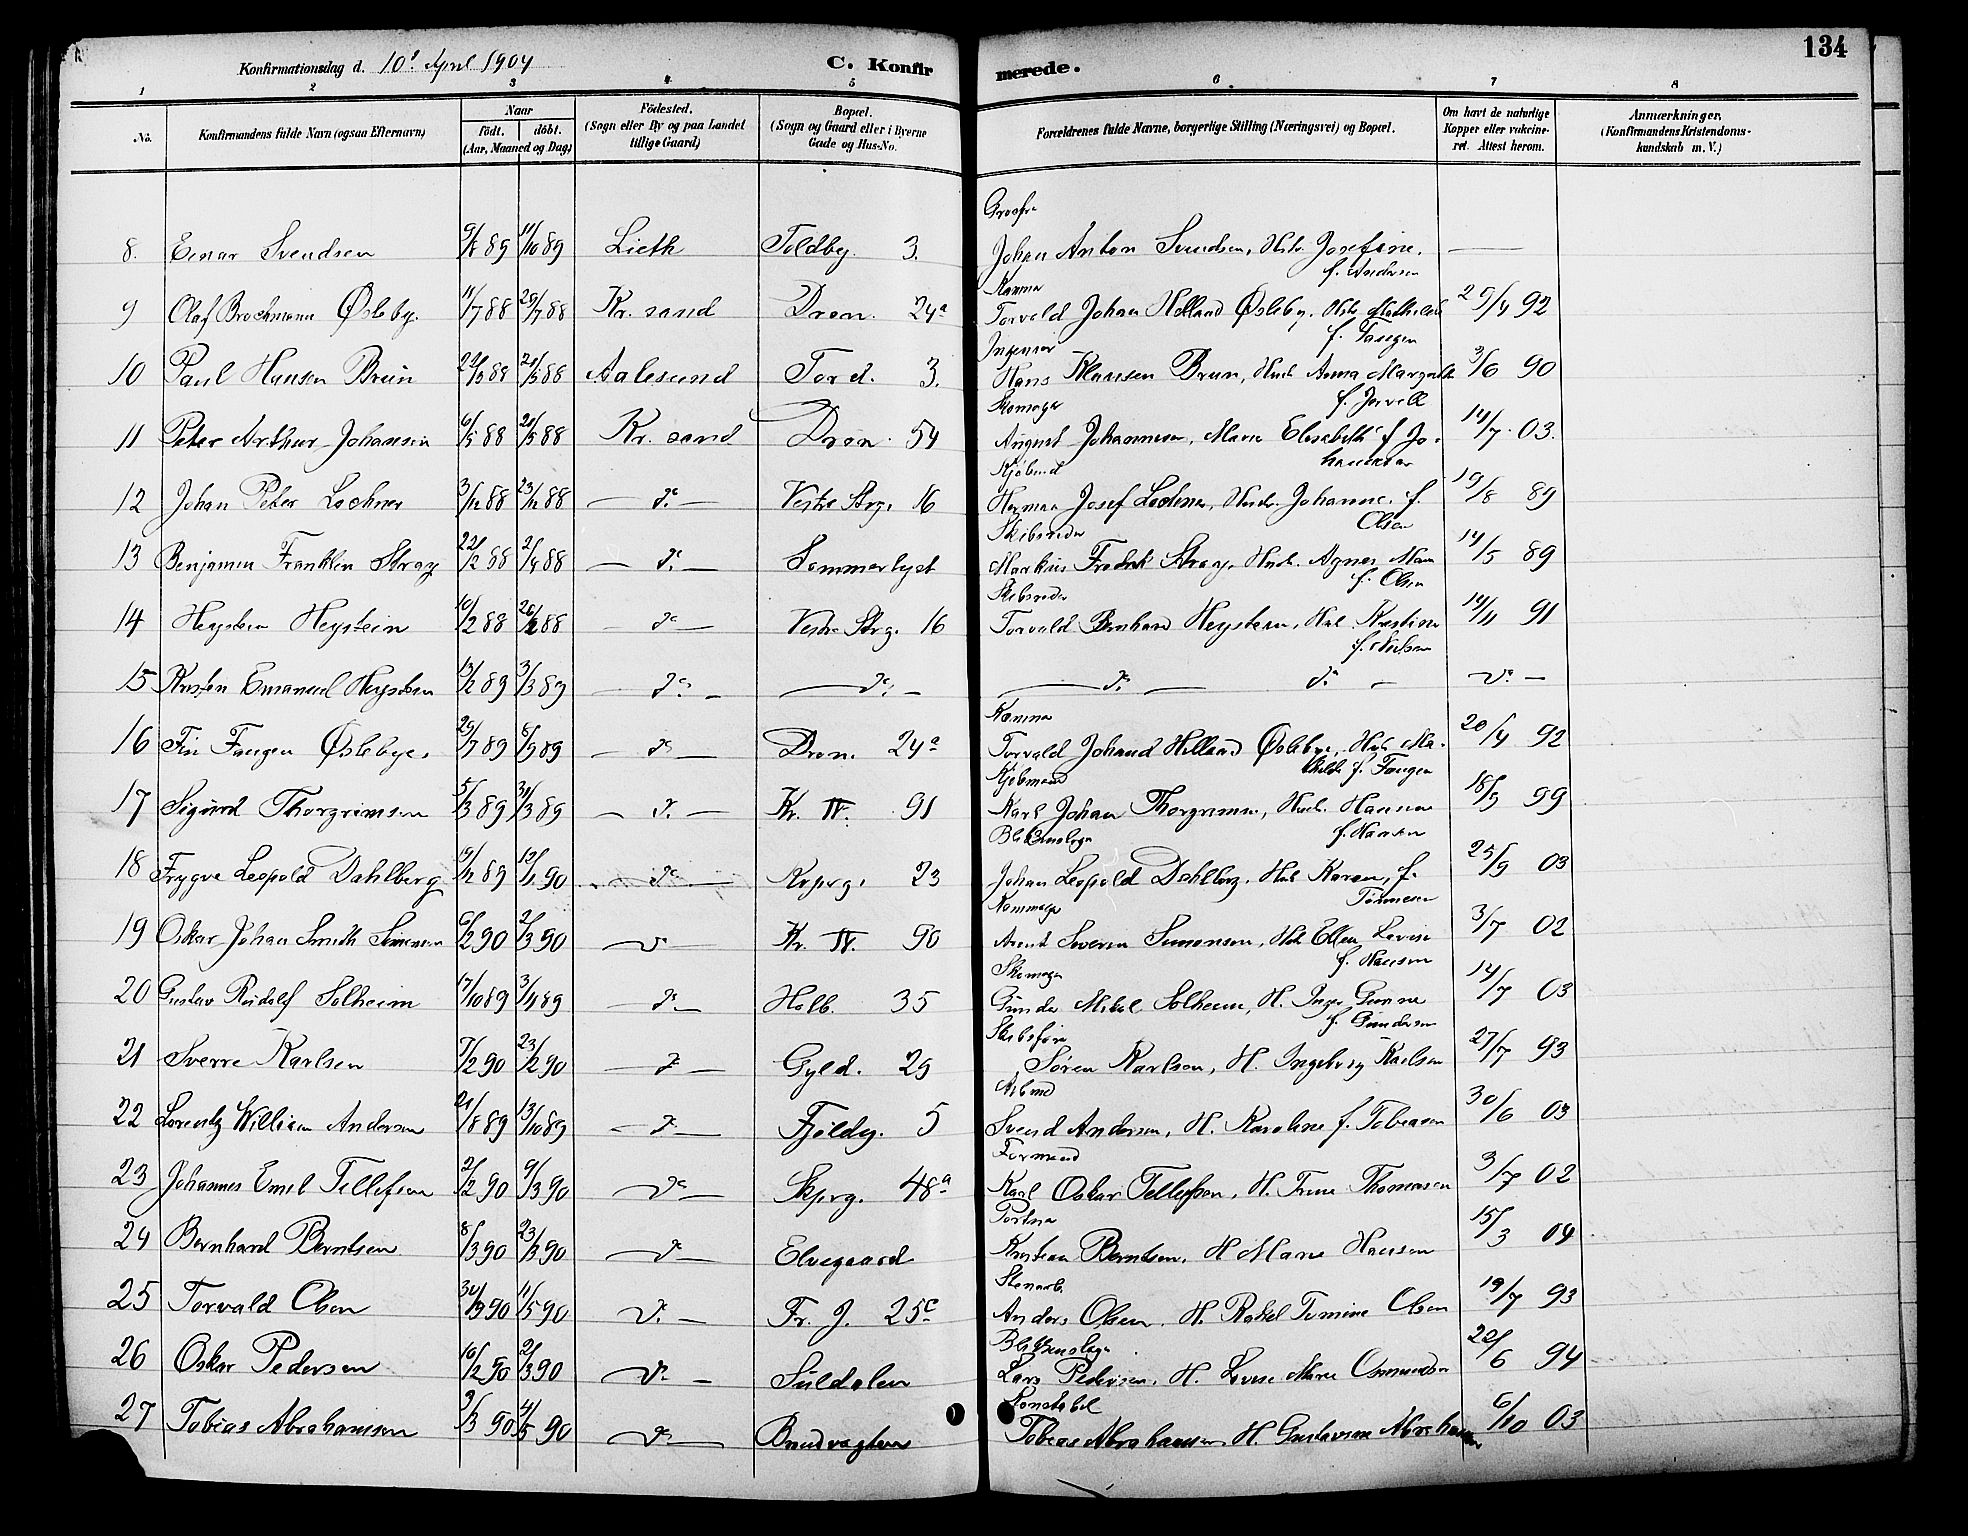 134
Konfirmationsdag d. 10d April 1904 C. Konfirmerede.
1 2 3 4 5 6 7 8
No. Konfirmandens fulde Navn (ogsaa Efternavn) Naar født. døbt. (Aar, Maaned og Dag) Fødested. (Sogn eller By og paa Landet tillige Gaard) Bopæl. (Sogn og Gaard eller i Byerne Gade og Hus-No. Forældrenes fulde Navne, borgerlige Stilling (Næringsvei) og Bopæl. Om havt de naturlige Kopper eller vakcineret. Attest herom. Anmærkninger. (Konfirmandens Kristendomskundskab m. V.)
8. Einar Svendsen 89 11/10 89 Lieth Toldbg. 3. Johan Anton Svendsen, Hust. Josefine. f. Andersen —
9 Olaf Brochmann Øsleby. 11/7 88 29/7 88 Kr. sand Dron. 24a Torvald Johan Helland Øsleby. Hust. Mathilde f. Fangen 29/4 92
10 Paul Hansen Brun 88 Aalesund Tord. 3. Ingeniør Hans Klausen Brun, Hust. Anna Margrethe f. Jervell 3/6 90
11 Peter Arthur Johansen 6/5 88 20/5 88 Kr. sand Dron. 54 Skomager August Johannesen, Marie Elisabeth f. Johannesen 14/7 03.
12 Johan Peter Lochner 3/12 88 23/12 88 — do — Vestre Strg. 16 Kjøbmd Herman Josef Lochner, Hust. Johanne. f. Olsen 19/8 89
13 Benjamin Franklin Stray 22/2 88 2/4 88 — do — Sommerlyst Skibsreder Markus Fredrik Stray, Hust. Agnes Marie f. Olsen 14/5 89
14 Heystein 10/2 88 26/2 88 — do Vestre Strg. 16 Skibsreder Torvald Bernhard Heystein, Hust. Kristine f. Nielsen 14/11 91
15 Kristen Emanuel Heystein 13/2 89 3/3 89 — do — — do — — do — do — do —
16 Fin Fangen Øslebye. 29/7 89 8/9 89 — do — Dron. 24a Torvald Johand Helland Øslebye, Hust. Mathilde f. Fangen 20/4 92
17 Sigurd Thorgrimsen 5/3 89 31/3 89 — do — Kr. IV. 91 Kjøbmand Karl Johan Thorgrimsen, Hust. Hanna f. Hansen 18/9 99
18 Trygve Leopold Dahlberg 19/12 89 12/1 90 — do — 23 Blikkenslager Johan Leopold Dahlberg. Hust. Karen, f. Tønnesen 25/9 03
19 Oskar Johan Smith Simonsen 6/2 90 2/3 90 do — Kr. IV. 90 Arent Severin Simonsen, Hust. Ellen Lovise f. Hansen 3/7 02
20 Gustav Rudolf Solheim 17/10 89 3/11 89 — do — Holb. 35 Skomager Gunder Mikal Solheim, H. Inger Gurine f. Gundersen 14/7 03
21 Sverre Karlsen 7/2 90 23/2 90 — do — Gyld. 29 Skibsfører Søren Karlsen, H. Ingeborg Karlsen 27/7 93
22 Lorentz William Andersen 21/8 89 13/10 89 — do — Fjeldg. 5 Arbmd Svend Andersen, H. Karoline f. Tobiasen 30/6 03
23 Johannes Emil Tellefsen 2/2 90 9/3 90 do — Skprg. 48a Formand Karl Oskar Tellefsen, H. Trine Thomasen 3/7 02
24 Bernhard Berntsen 8/3 90 23/3 90 do — Elvegaard Kristian Berntsen, H. Marie Hansen 15/3 04
25 Torvald Olsen 30/3 90 11/5 90 do — Fr. J. 25c Stenarb. Anders Olsen. H. Rakel Tomine Olsen 19/7 93
26 Oskar Pedersen 16/2 90 2/3 90 do — Suldalen Blikkenslager Lars Pedersen. H. Lovise Marie Osmundsen 22/6 94
27 Tobias Abrahamsen 2/3 90 4/5 90 do — Brandvagten Konstabel Tobias Abrahamsen, H. Gustavine Abrahamsen 6/10 03